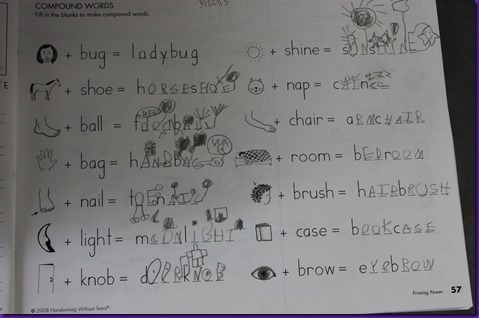 COMPOUND WORDS
Fill in the blanks to make compound words.
+ bug = ladybug
+ shoe = hORSESHOE
+ ball =
+ bag = hANDBAG
+ nail = tOENAIL
+ light = mOONlIGHT
+ knob = dOORkNOB
+ shine = sUNSHINE
+ nap = cATNAP
+ chair = aRMCHAIR
+ room = bEDrOOM
+ brush = hAIRbRUSH
+ case = bOOKCASE
+ brow = eYEbROW
© 2008 Handwriting Without Tears®
Printing Power 57